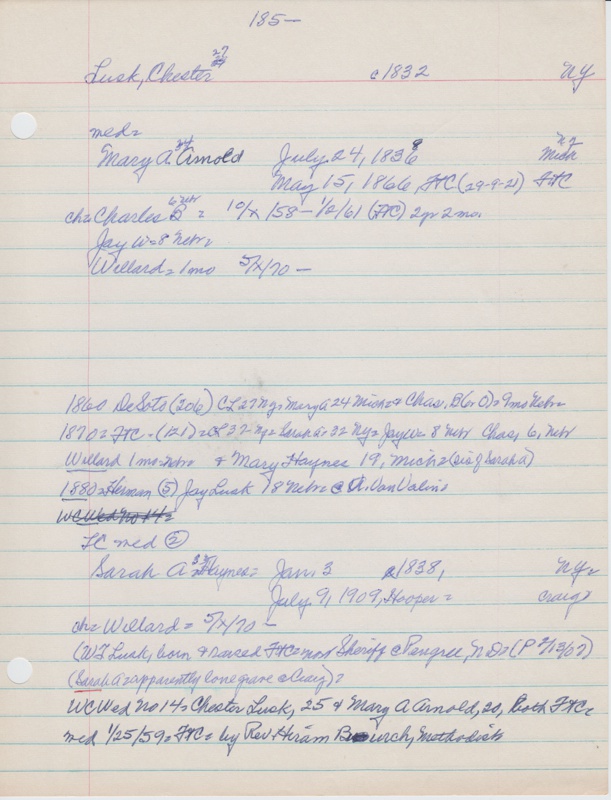 185—
27
Lusk, Chester c1832 NY
med=
24 NY
Mary A. Arnold July 24, 1836 Mich
May 15, 1866, FtC (29-9-21) FtC
6 Nebr
ch= Charles B = 10/x/58 - 1/2/61 (FtC) 2yr 2mo.
Jay W=8 Nebr=
Willard=1mo 5/x/70 —
1860 DeSoto (206) CL 27 Ny= Mary A 24 Mich= & Chas. B(6:0)=9mo Nebr=
1870= FtC - (121)=CL 37 Ny= Sarah A= 32 Ny= Jay W= 8 Nebr Chas, 6, Nebr
Willard 1 mo=Nebr & Mary Haynes 19, Mich=(sis of Sarah A)
1880=Herman (5) Jay Lusk 18 Nebr= @ A. Van Valin=
WCWed No 14=
FC med (2)
Sarah A Haynes= Jan. 3 c1838, Ny=
July 9, 1909, Hooper= Craig?
ch= Willard = 5/x/70 —
(WF Lusk, born & raised FtC=now Sheriff @ Pengree, ND= (P 2/13/07)
(Sarah A=apparently lone grave @ Craig)=
WCWed No 14= Chester Lusk, 25 & Mary A Arnold, 20, both FtC=
med 1/25/59= FtC= by Rev. Hiram Burch, Methodist